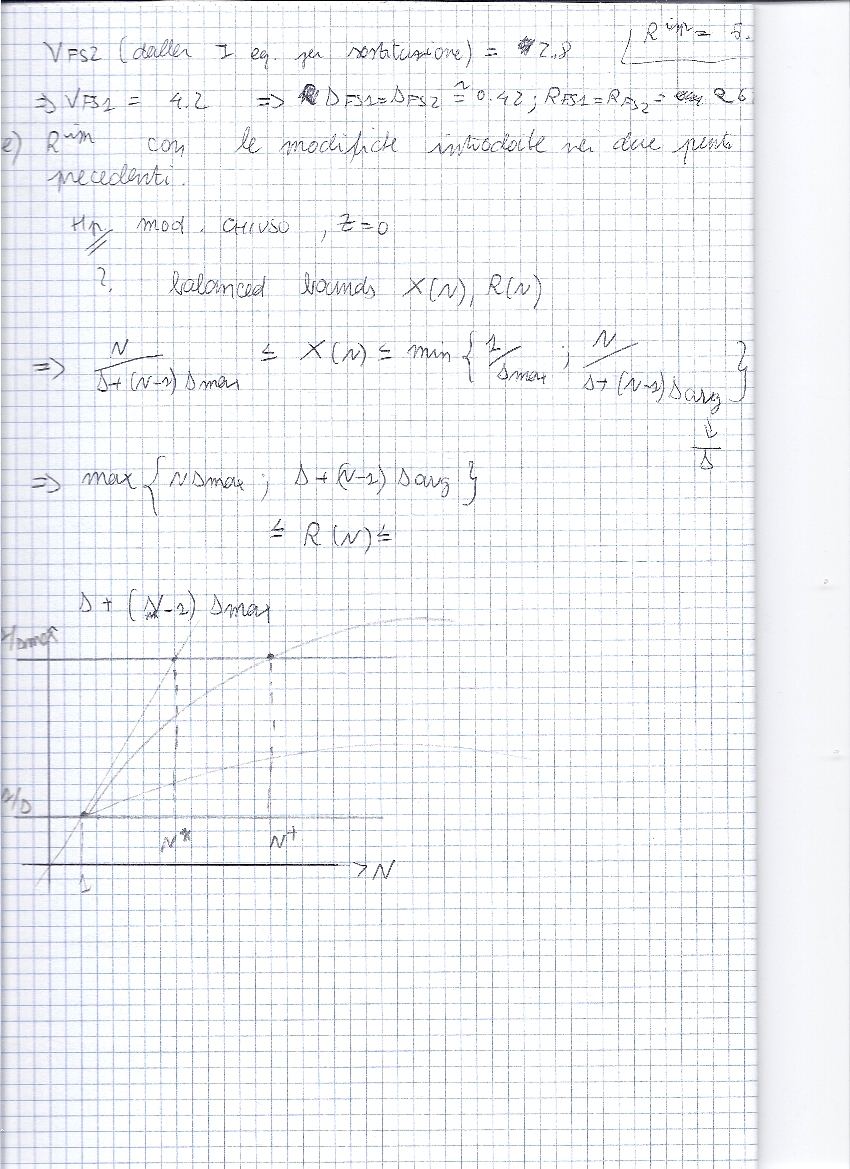 VFS2 (dalla I eq. per sostituzione) = 2.8 R^im = 5.
⇒ VFS1 = 4.2 ⇒ DFS1 = DFS2 ≅ 0.42 ; RFS1 = RFS2 = 26
e) R^im con le modifiche introdotte nei due punti
precedenti.
Hp mod. CHIUSO , Z=0
? balanced bounds X(N), R(N)
⇒ N / D+(N-1) Dmax ≤ X(N) ≤ min { 1/Dmax ; N / D+(N-1) Davg }
↓
D
⇒ max { N Dmax ; D+(N-1) Davg }
≤ R(N) ≤
D + (N-1) Dmax
1/Dmax
1/D
N* N+
1 > N